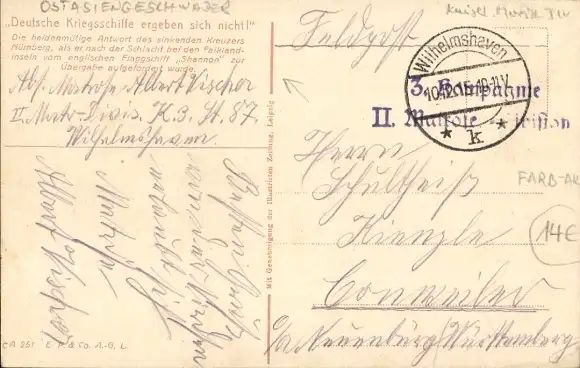 OSTASIENGESCHWADER
„Deutsche Kriegsschiffe ergeben sich nicht!"
Die heldenmütige Antwort des sinkenden Kreuzers
Nürnberg, als er nach der Schlacht bei den Falkland-
inseln vom englischen Flaggschiff „Shannon" zur
Übergabe aufgefordert wurde.
Abs. Matrose Albert Vischer
II Matr-Divis. K. 3. St. 87.
Wilhelmshaven.
Besten Gruß
sendet
Albert Vischer
C/A 951 E. P. & Co. A.-G. L.
Mit Genehmigung der Illustrirten Zeitung, Leipzig
Feldpost
Kaiserl. Marine
Wilhelmshaven
10.12.15.10-11V
* k *
3. Kompagnie
II. Matrosen-Division
Herrn
Schultheiß
Kienzle
Conweiler
O/A Neuenbürg Württemberg
FARB-AK
14€